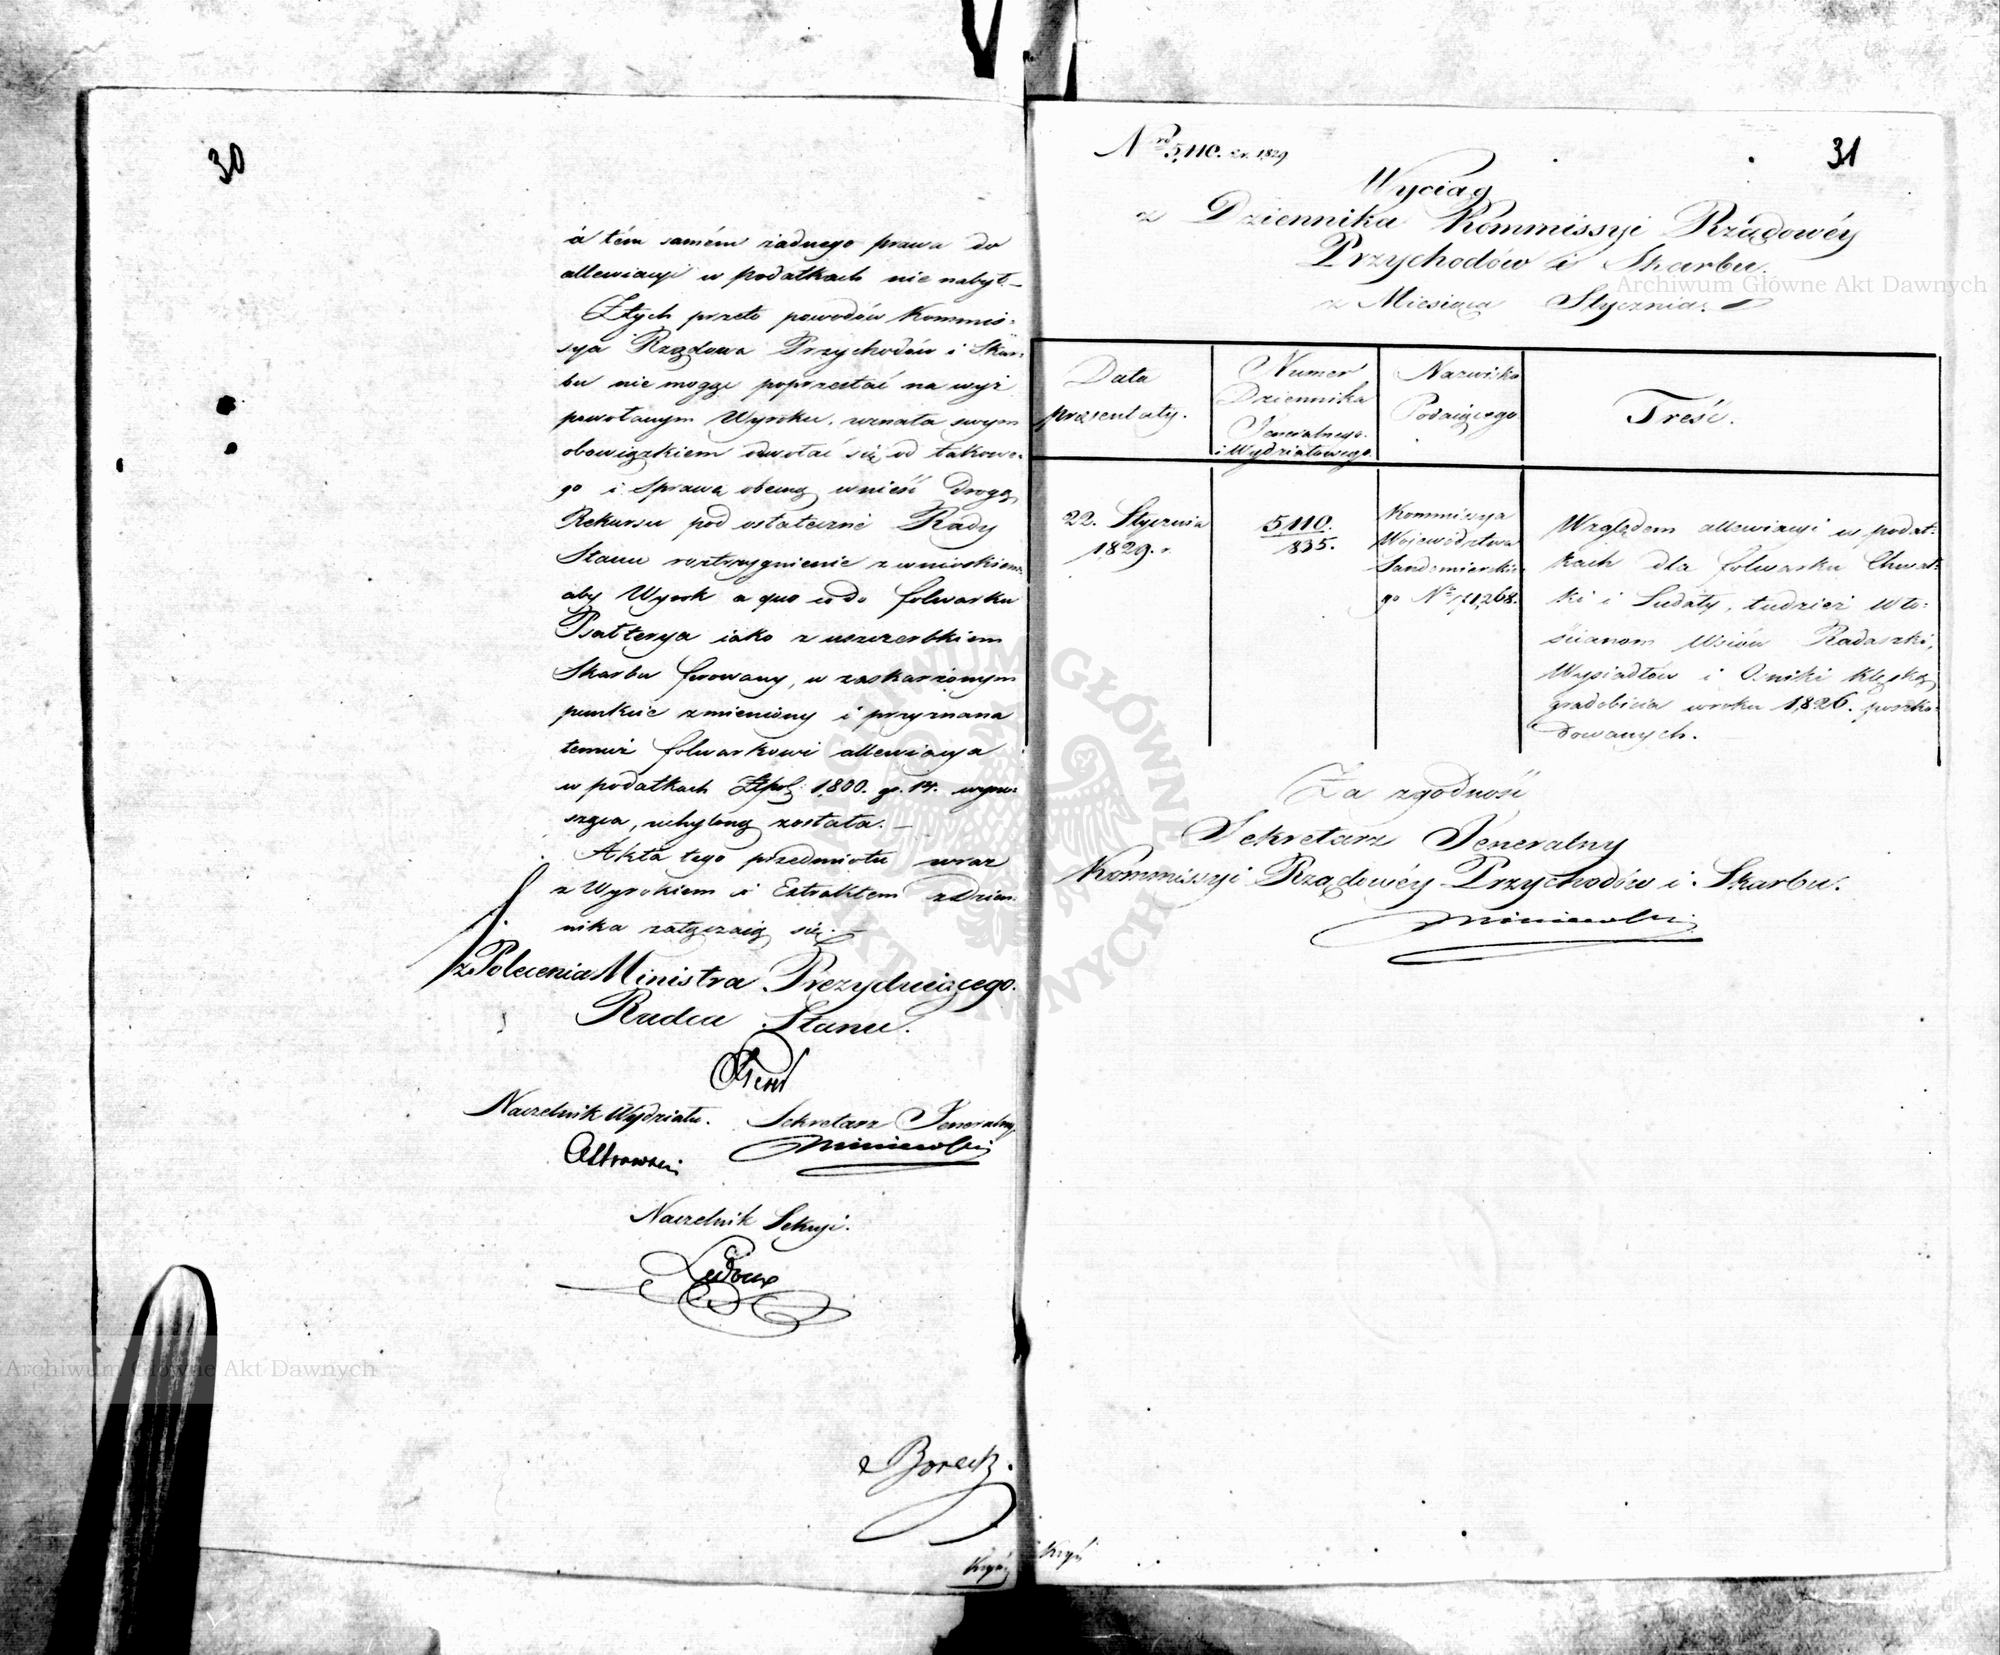 30
a tém samém żadnego prawa do
allewiacyi w podatkach nie nabył.—
Z tych przeto powodów Kommis-
sya Rządowa Przychodów i Skar-
bu nie mogąc poprzestać na wyż
powołanym Wyroku, uznała swym
obowiązkiem odwołać się od takowe-
go i Sprawę obecną wnieść drogą
Rekursu pod ostateczné Rady
Stanu rozstrzygnienie z wnioskiem
aby Wyrok a quo co do folwarku
Psałterya iako z uszczerbkiem
Skarbu ferowany, w zaskarżonym
punkcie zmieniony i przyznana
temuż folwarkowi allewiacya
w podatkach Złpol: 1,800. gr. 14. wyno-
sząca, uchyloną została.—
Akta tego przedmiotu wraz
z Wyrokiem i Extraktem z Dzien-
nika załączaią się.—
z Polecenia Ministra Prezyduiącego.
Radca Stanu.
Naczelnik Wydziału. Sekretarz Jeneralny
Naczelnik Sekcyi.
Ledoux
31
Nro 5,110. 1829
Wyciąg
z Dziennika Kommissyi Rządowéy
Przychodów i Skarbu.
z Miesiąca Stycznia.
Data
prezentaty.
Numer
Dziennika
Jeneralnego
i Wydziałowego.
Nazwisko
Podaiącego
Treść.
22. Stycznia
1829. r.
5110.
835.
Kommissya
Województwa
Sandomierskie-
go No 71,268.
Względem allewiacyi w podat-
kach dla folwarku Chwał-
ki i Ludaty, tudzież Wło-
ścianom Wsiów Radoszki,
Wysiadłów i Ocinki klęską
gradobicia w roku 1,826. poszko-
dowanych.
Za zgodność
Sekretarz Jeneralny
Kommissyi Rządowéy Przychodów i Skarbu.
Archiwum Główne Akt Dawnych
Archiwum Główne Akt Dawnych
ARCHIWUM GŁÓWNE AKT DAWNYCH